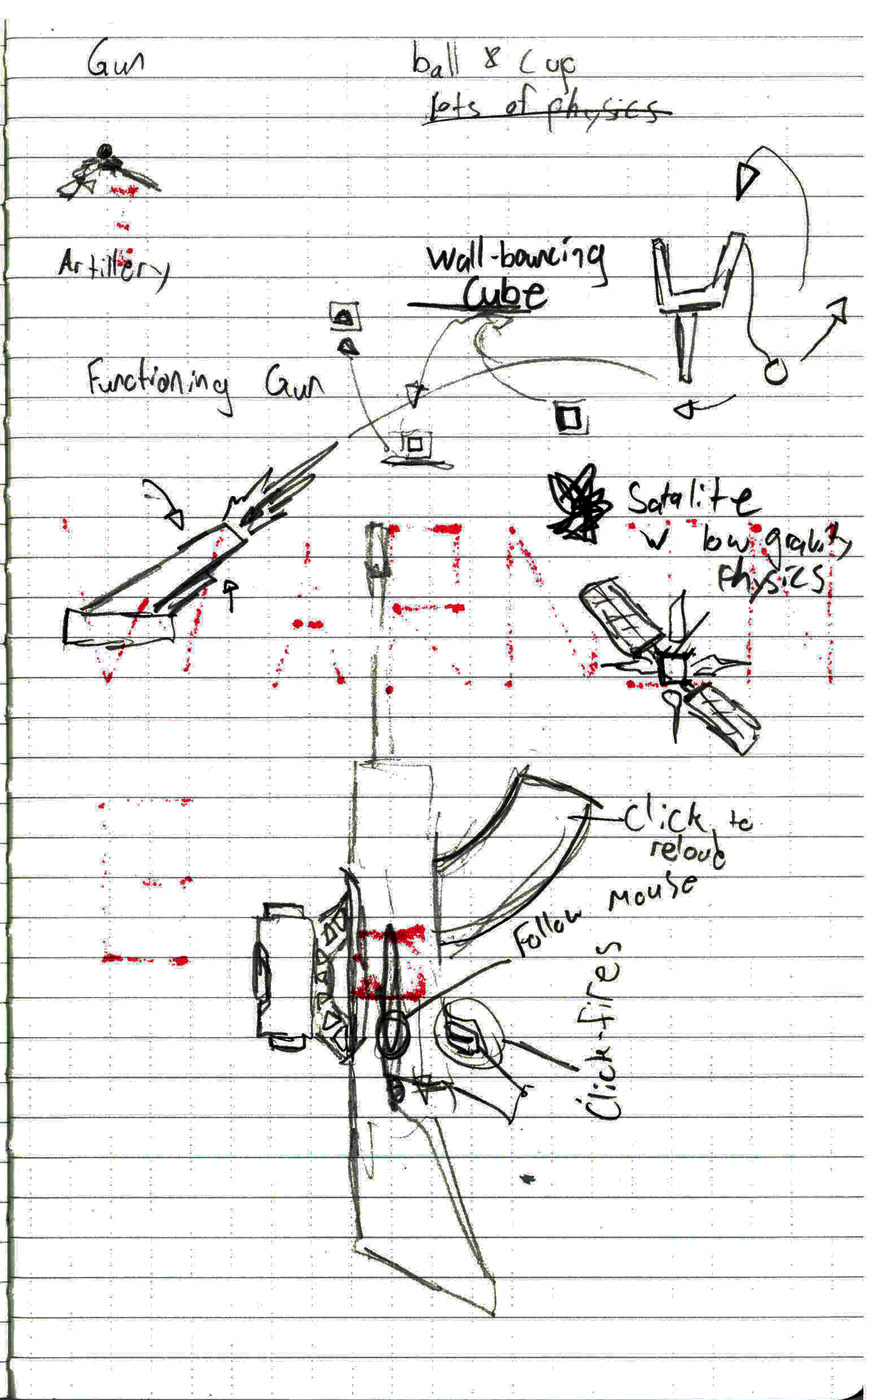 Gun
ball & cup
lots of physics
Artillery
Wall-bouncing
Cube
Functioning Gun
Satalite
w low gravity
physics
Click to
reload
Follow mouse
Click-fires